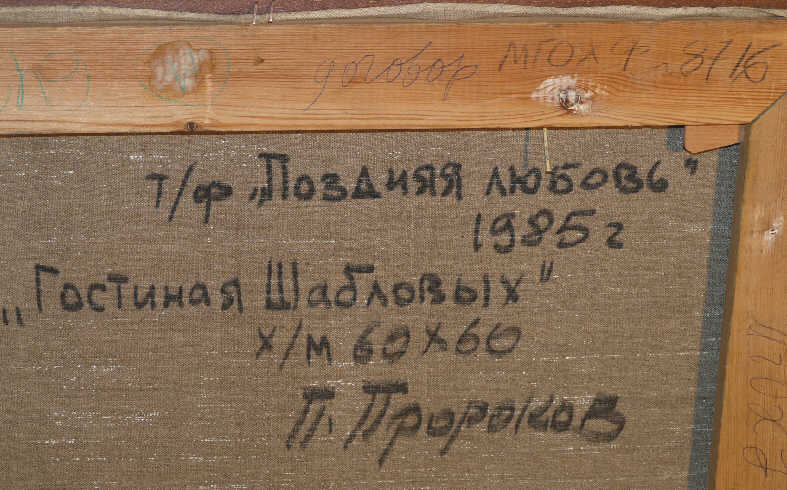 договор МГОЛФ 8/16
т/ф „Поздняя любовь"
1985 г
„Гостиная Шабловых"
х/м 60х60
П. Пророков